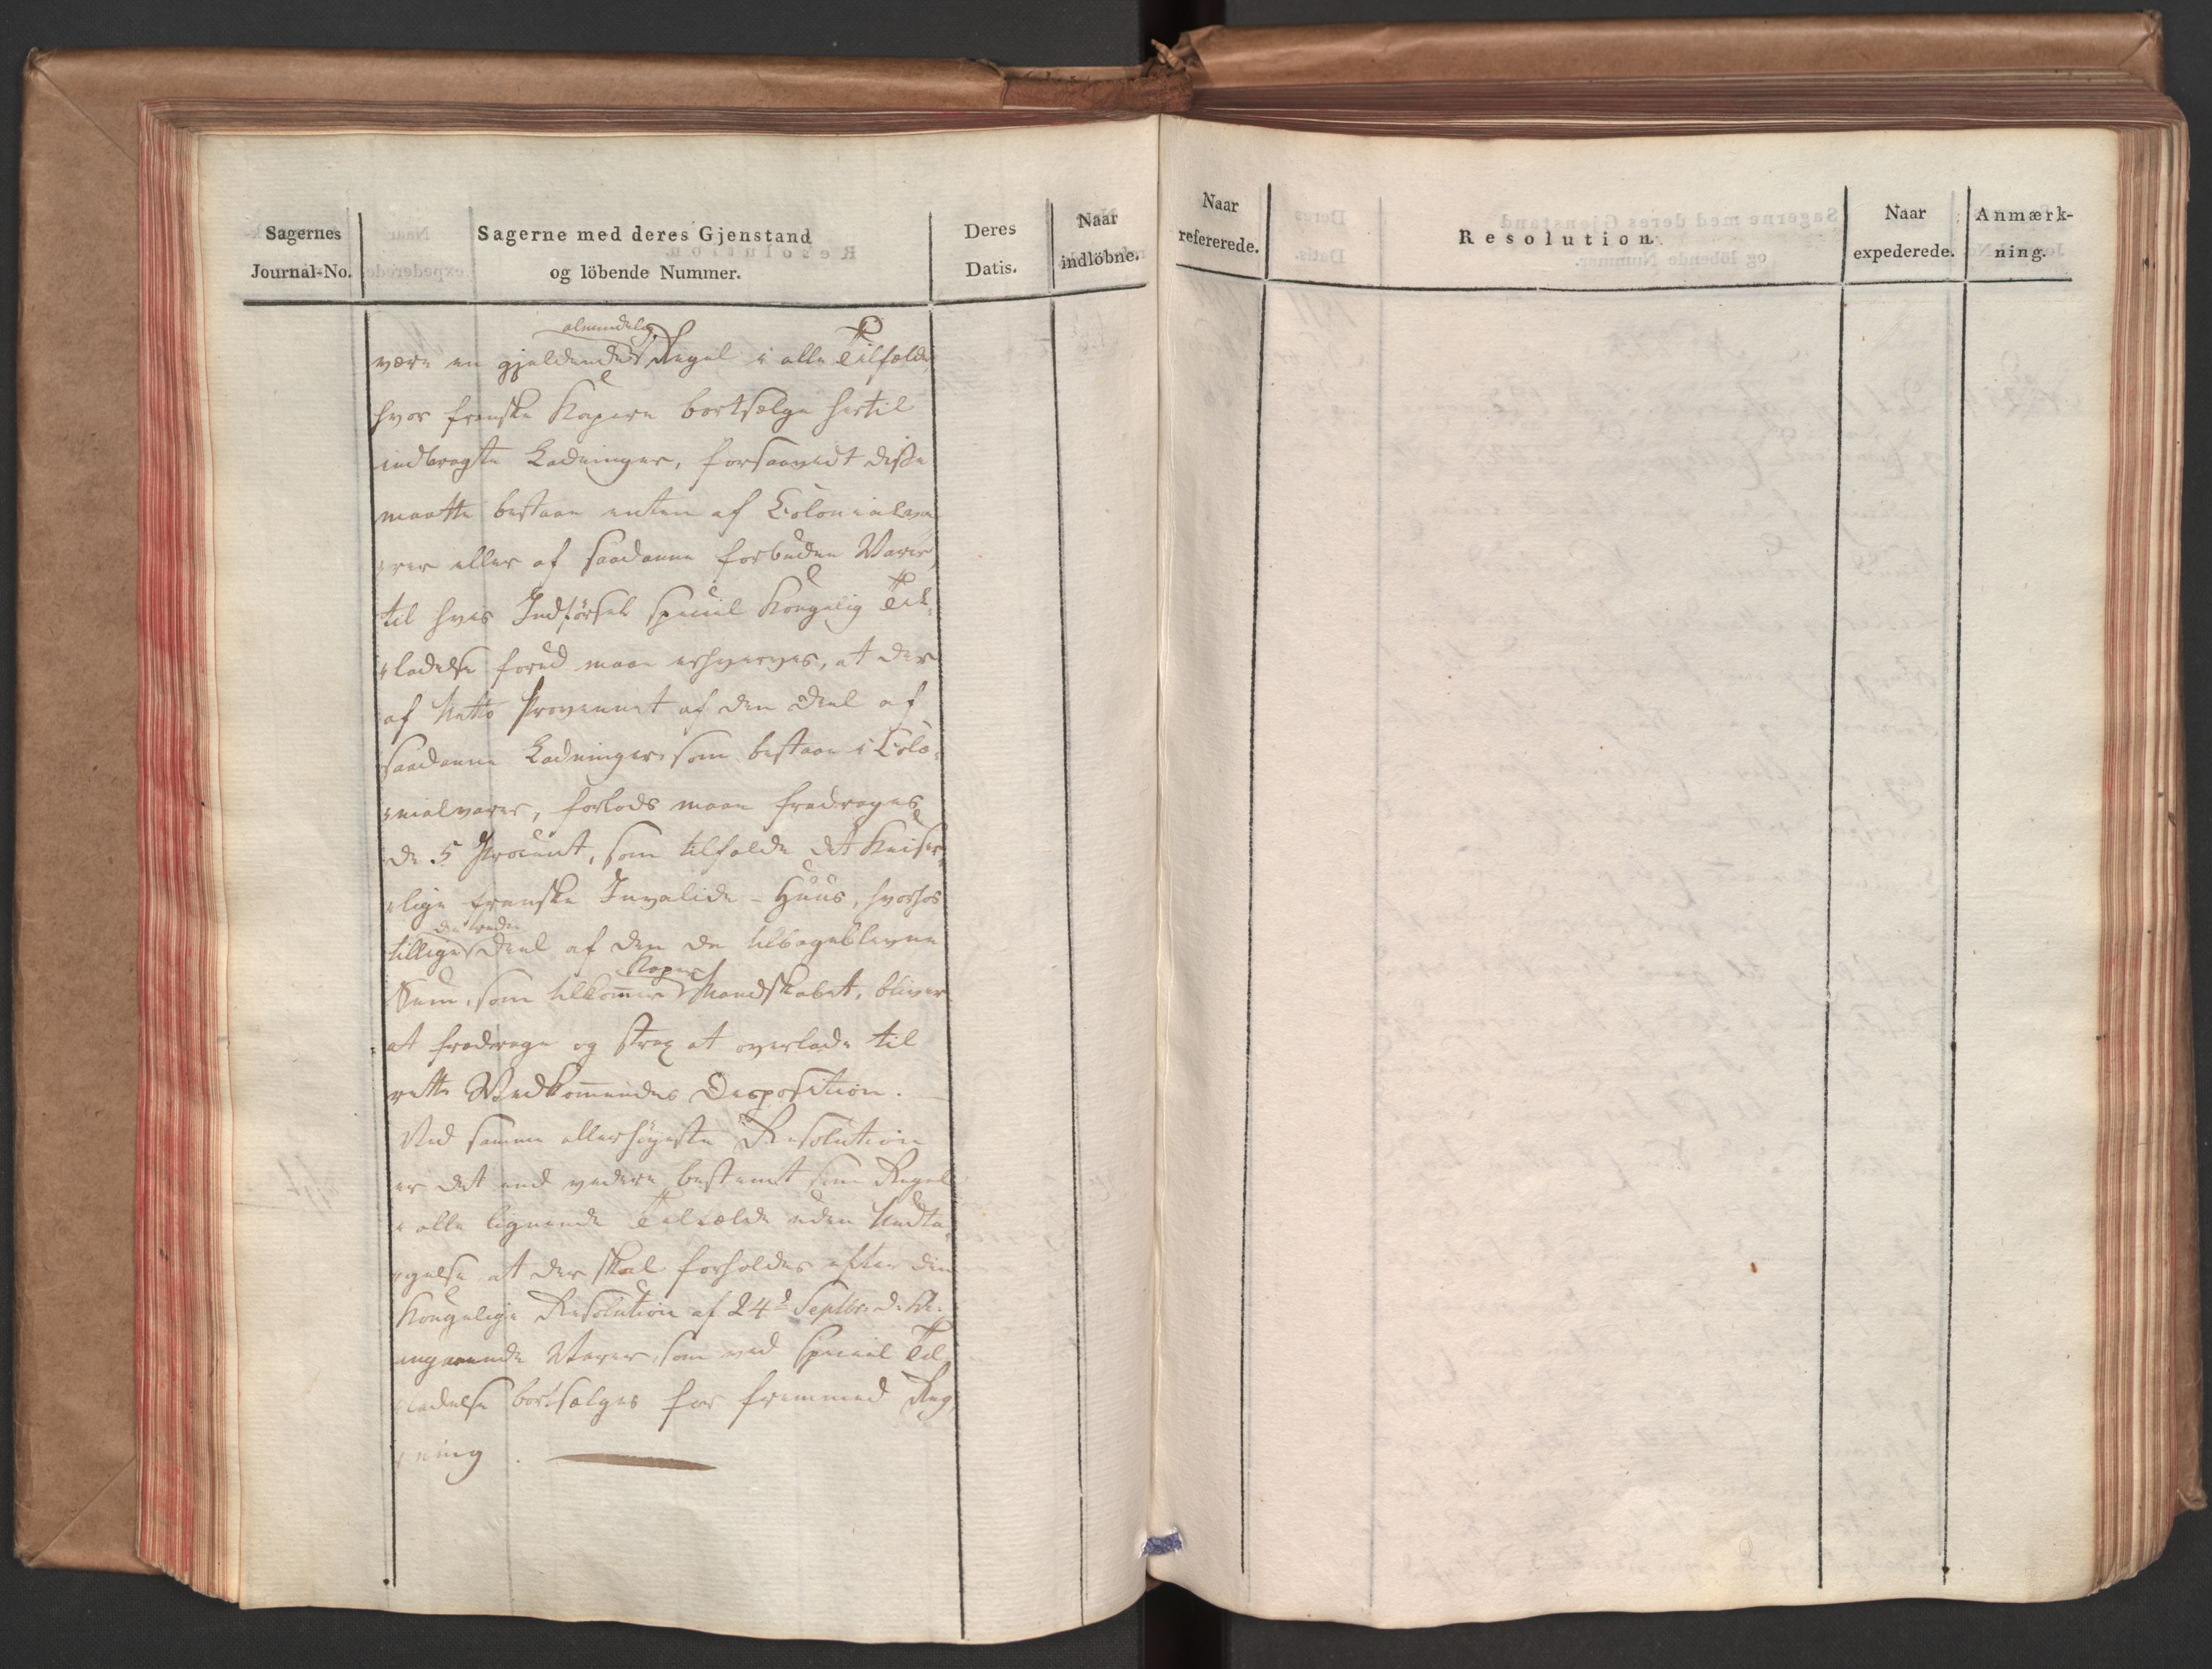 Sagernes
Journal-No.
Sagerne med deres Gjenstand
og löbende Nummer.
Deres
Datis.
Naar
indlöbne.
Naar
refererede.
Resolution.
Naar
expederede.
Anmærk-
ning.
almindelig
være en gjeldende Regel i alle Tilfælde
hvor franske Kapere bortsælge hertil
indbragte Ladninger, forsaavidt disse
maatte bestaae enten af Colonialva
rer eller af saadanne forbudne Varer,
til hvis Indførsel special Kongelig Til-
ladelse forud maae erhverves, at der
af Netto Provenuet af den Deel af
saadanne Ladninger, som bestaae i Colo-
nialvarer, forlods maae fradrages
de 5 Procent, som tilfalde det Keiser-
lige franske Invalide-Huus, hvorhos
den tredie
tillige Deel af den da tilbageblevne
Kaper
Sum, som tilkommer Mandskabet, bliver
at fradrage og strax at overlade til
rette Vedkommendes Disposition. —
Ved samme allerhøyeste Resolution
er det end videre bestemt som Regel
i alle lignende Tilfælde uden Undta-
gelse at der skal forholdes efter den
Kongelige Resolution af 24de Septbr. d. A.
angaaende Varer, som ved special Til
ladelse bortsælges for fremmed Reg
ning.